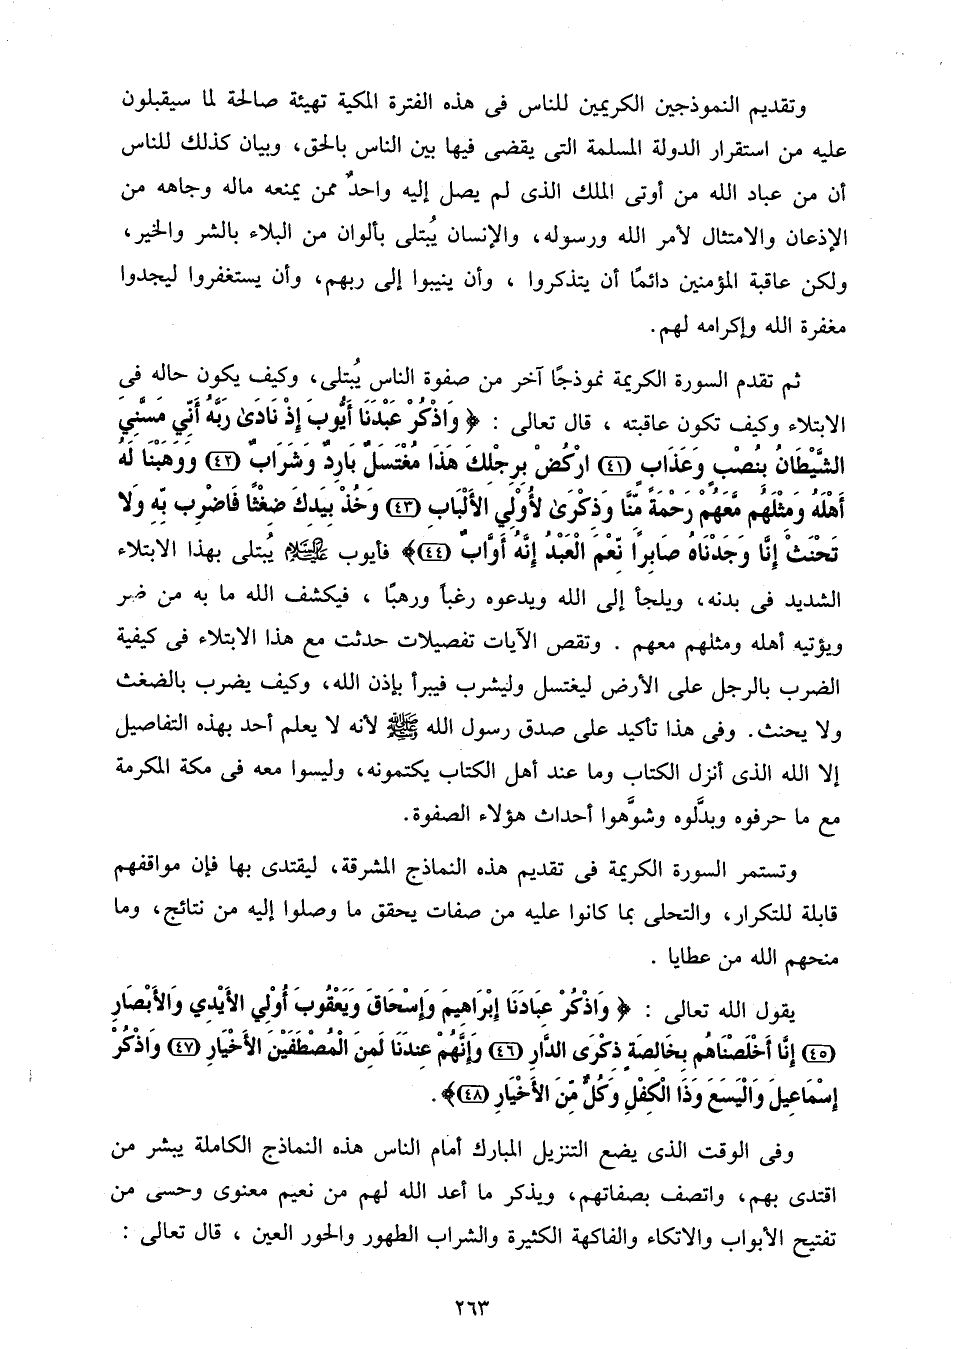 وتقديم النموذجين الكريمين للناس فى هذه الفترة المكية تهيئة صالحة لما سيقبلون
عليه من استقرار الدولة المسلمة التى يقضى فيها بين الناس بالحق، وبيان كذلك للناس
أن من عباد الله من أوتى الملك الذى لم يصل إليه واحدٌ ممن يمنعه ماله وجاهه من
الإذعان والامتثال لأمر الله ورسوله، والإنسان يُبتلى بألوان من البلاء بالشر والخير،
ولكن عاقبة المؤمنين دائمًا أن يتذكروا ، وأن ينيبوا إلى ربهم، وأن يستغفروا ليجدوا
مغفرة الله وإكرامه لهم.
ثم تقدم السورة الكريمة نموذجًا آخر من صفوة الناس يُبتلى، وكيف يكون حاله فى
الابتلاء وكيف تكون عاقبته ، قال تعالى : ﴿ وَاذْكُرْ عَبْدَنَا أَيُّوبَ إِذْ نَادَىٰ رَبَّهُ أَنِّي مَسَّنِيَ
الشَّيْطَانُ بِنُصْبٍ وَعَذَابٍ (٤١) ارْكُضْ بِرِجْلِكَ هَذَا مُغْتَسَلٌ بَارِدٌ وَشَرَابٌ (٤٢) وَوَهَبْنَا لَهُ
أَهْلَهُ وَمِثْلَهُم مَّعَهُمْ رَحْمَةً مِّنَّا وَذِكْرَىٰ لأُوْلِي الأَلْبَابِ (٤٣) وَخُذْ بِيَدِكَ ضِغْثًا فَاضْرِب بِّهِ وَلا
تَحْنَثْ إِنَّا وَجَدْنَاهُ صَابِرًا نِّعْمَ الْعَبْدُ إِنَّهُ أَوَّابٌ (٤٤)﴾ فأيوب عليه السلام يُبتلى بهذا الابتلاء
الشديد فى بدنه، ويلجأ إلى الله ويدعوه رغباً ورهبًا ، فيكشف الله ما به من ضر
ويؤتيه أهله ومثلهم معهم . وتقص الآيات تفصيلات حدثت مع هذا الابتلاء فى كيفية
الضرب بالرجل على الأرض ليغتسل وليشرب فيبرأ بإذن الله، وكيف يضرب بالضغث
ولا يحنث. وفى هذا تأكيد على صدق رسول الله ﷺ لأنه لا يعلم أحد بهذه التفاصيل
إلا الله الذى أنزل الكتاب وما عند أهل الكتاب يكتمونه، وليسوا معه فى مكة المكرمة
مع ما حرفوه وبدَّلوه وشوَّهوا أحداث هؤلاء الصفوة.
وتستمر السورة الكريمة فى تقديم هذه النماذج المشرقة، ليقتدى بها فإن مواقفهم
قابلة للتكرار، والتحلى بما كانوا عليه من صفات يحقق ما وصلوا إليه من نتائج، وما
منحهم الله من عطايا .
يقول الله تعالى : ﴿ وَاذْكُرْ عِبَادَنَا إِبْرَاهِيمَ وَإِسْحَاقَ وَيَعْقُوبَ أُوْلِي الأَيْدِي وَالأَبْصَارِ
(٤٥) إِنَّا أَخْلَصْنَاهُم بِخَالِصَةٍ ذِكْرَى الدَّارِ (٤٦) وَإِنَّهُمْ عِندَنَا لَمِنَ الْمُصْطَفَيْنَ الأَخْيَارِ (٤٧) وَاذْكُرْ
إِسْمَاعِيلَ وَالْيَسَعَ وَذَا الْكِفْلِ وَكُلٌّ مِّنَ الأَخْيَارِ (٤٨)﴾ .
وفى الوقت الذى يضع التنزيل المبارك أمام الناس هذه النماذج الكاملة يبشر من
اقتدى بهم، واتصف بصفاتهم، ويذكر ما أعد الله لهم من نعيم معنوى وحسى من
تفتيح الأبواب والاتكاء والفاكهة الكثيرة والشراب الطهور والحور العين ، قال تعالى :
٢٦٣